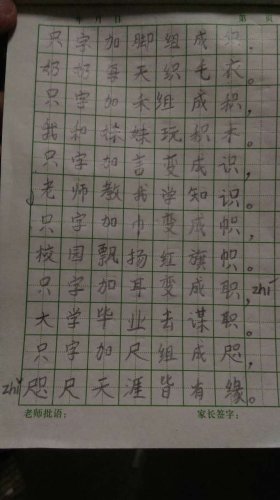 年 月 日 第 页
只字加脚组成织。
奶奶每天织毛衣。
只字加禾组成积，
我和妹妹玩积木。
只字加言变成识，
老师教我学知识。
只字加巾变成帜，
校园飘扬红旗帜。
只字加耳变成职，zhí
大学毕业去谋职。
只字加尺组成咫，
zhǐ咫尺天涯皆有缘。
老师批语： 家长签字：